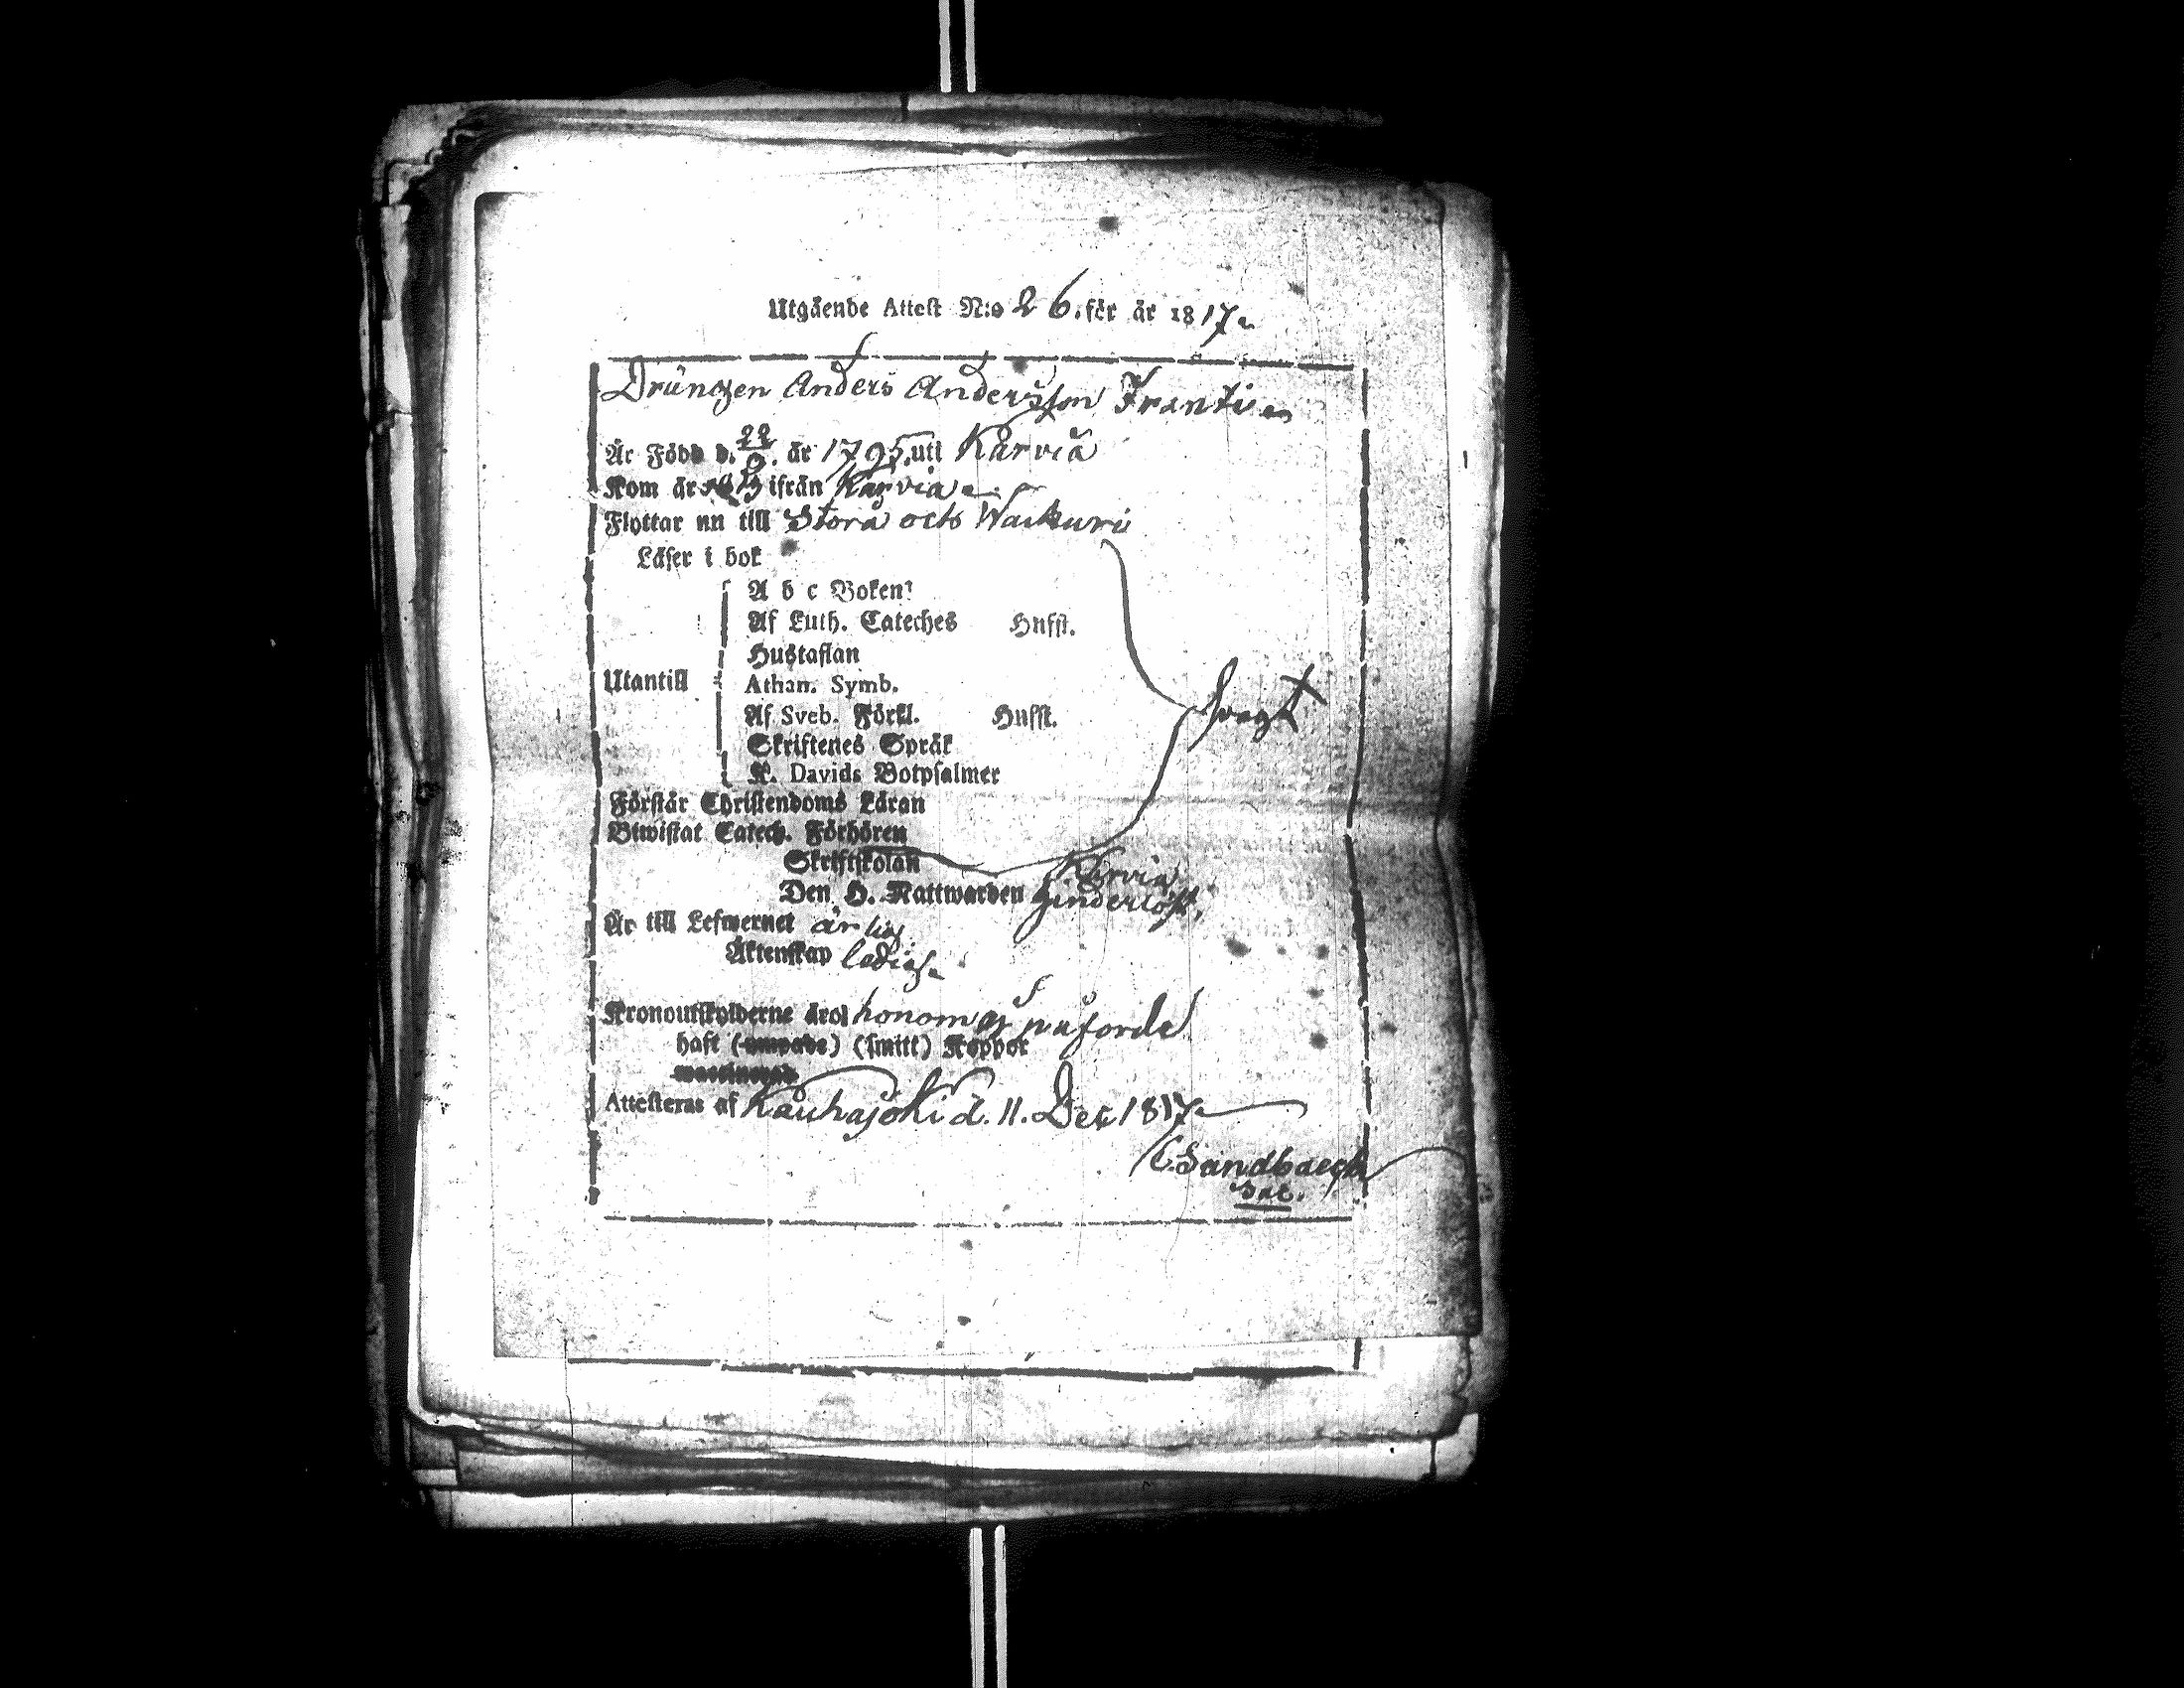 Utgående Attest N:o 26. för år 1817.
Drängen Anders Andersson Frantti
Är Född d. 22/9. år 1795. uti Karvia
Kom år 1813 ifrån Karvia
Flyttar nu till Storå och Wackuri
Läser i bok
A b c Boken
Af Luth. Cateches Hufst.
Hustaflan
Utantill
Athan. Symb.
svagt
Af Sveb. Förkl. Hufst.
Skriftenes Språk
K. Davids Botpsalmer
Förstår Christendoms Läran
Biwistat Catech. Förhören
Skriftskolan
Karvia
Den H. Nattwarden hinderlöst,
Är till Lefwernet ärlig
Äktenskap ledig
Kronoutskylderne äro honom ej påförde
haft (smitt) Koppor
Attesteras af Kauhajoki d. 11. Dec 1817
C. Sandbaeck
Sac.